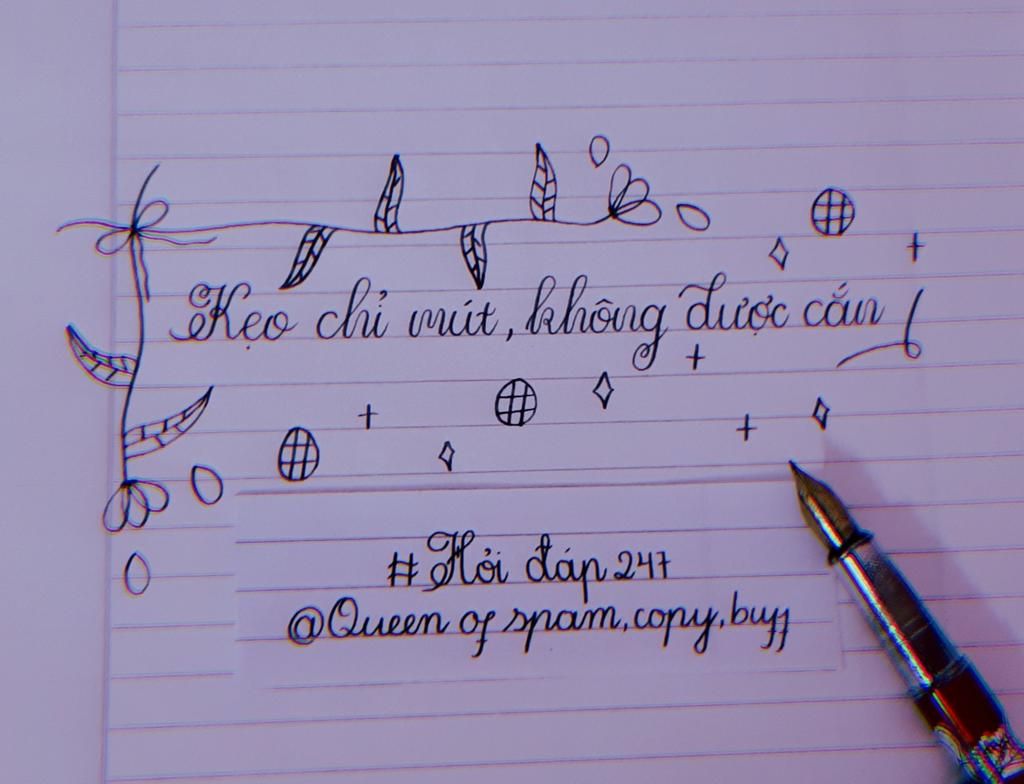 Kẹo chỉ mút, không được cắn!
#Hỏi đáp 247
@Queen of spam,copy,buff